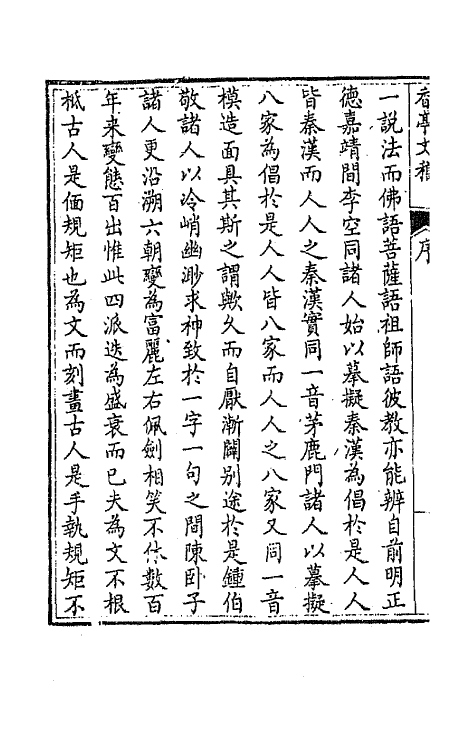 香亭文稿 序
一說法而佛語菩薩語祖師語彼教亦能辨自前明正
德嘉靖間李空同諸人始以摹擬秦漢為倡於是人人
皆秦漢而人人之秦漢實同一音茅鹿門諸人以摹擬
八家為倡於是人人皆八家而人人之八家又同一音
模造面具其斯之謂歟久而自厭漸闢别途於是鍾伯
敬諸人以冷峭幽渺求神致於一字一句之間陳卧子
諸人更沿溯六朝變為富麗左右佩劍相笑不休數百
年来變態百出惟此四派迭為盛衰而已夫為文不根
柢古人是偭規矩也為文而刻畫古人是手執規矩不